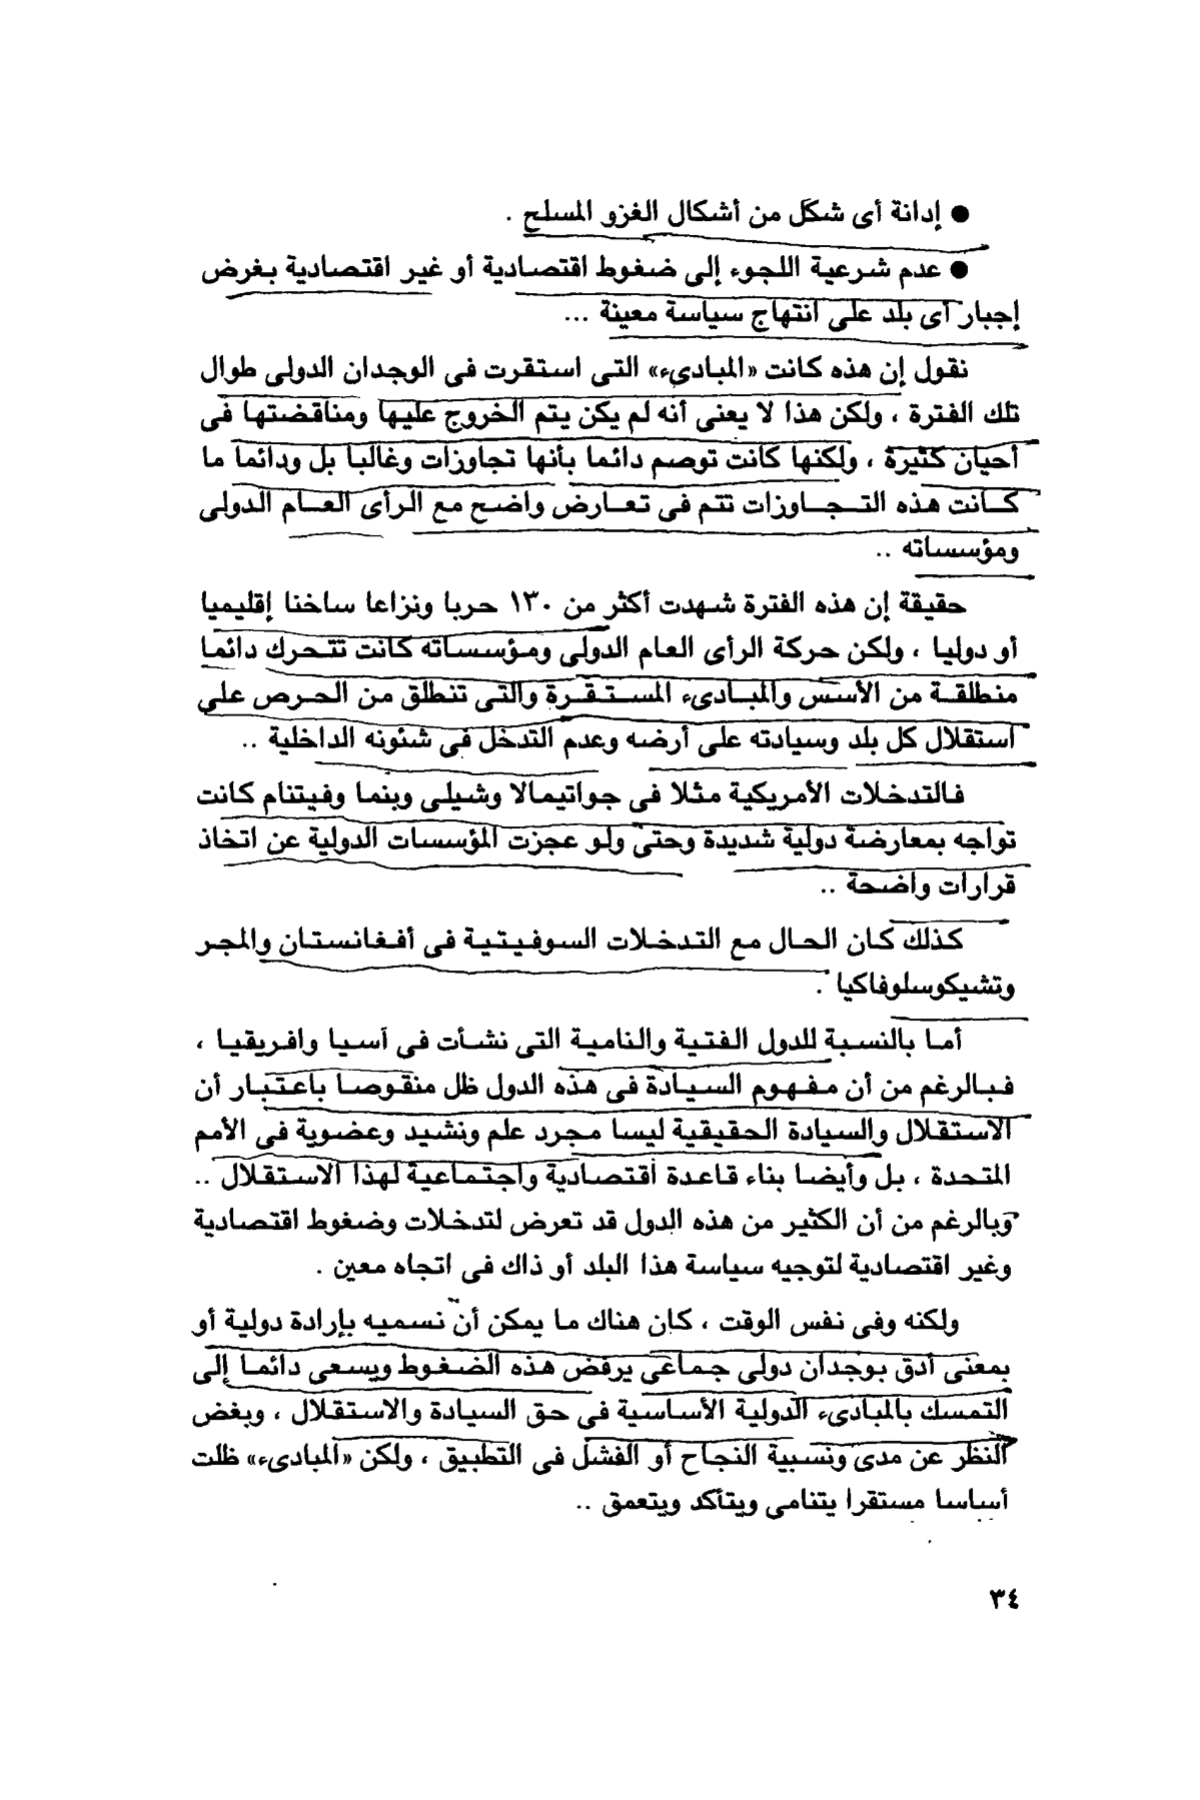 ● إدانة أى شكل من أشكال الغزو المسلح .
● عدم شرعية اللجوء إلى ضغوط اقتصادية أو غير اقتصادية بغرض
إجبار أى بلد على انتهاج سياسة معينة ...
نقول إن هذه كانت «المبادىء» التى استقرت فى الوجدان الدولى طوال
تلك الفترة ، ولكن هذا لا يعنى أنه لم يكن يتم الخروج عليها ومناقضتها فى
أحيان كثيرة ، ولكنها كانت توصم دائما بأنها تجاوزات وغالبا بل ودائما ما
كانت هذه التجاوزات تتم فى تعارض واضح مع الرأى العام الدولى
ومؤسساته ..
حقيقة إن هذه الفترة شهدت أكثر من ١٣٠ حربا ونزاعا ساخنا إقليميا
أو دوليا ، ولكن حركة الرأى العام الدولى ومؤسساته كانت تتحرك دائما
منطلقة من الأسس والمبادىء المستقرة والتى تنطلق من الحرص على
استقلال كل بلد وسيادته على أرضه وعدم التدخل فى شئونه الداخلية ..
فالتدخلات الأمريكية مثلا فى جواتيمالا وشيلى وبنما وفيتنام كانت
تواجه بمعارضة دولية شديدة وحتى ولو عجزت المؤسسات الدولية عن اتخاذ
قرارات واضحة ..
كذلك كان الحال مع التدخلات السوفيتية فى أفغانستان والمجر
وتشيكوسلوفاكيا .
أما بالنسبة للدول الفتية والنامية التى نشأت فى آسيا وافريقيا ،
فبالرغم من أن مفهوم السيادة فى هذه الدول ظل منقوصا باعتبار أن
الاستقلال والسيادة الحقيقية ليسا مجرد علم ونشيد وعضوية فى الأمم
المتحدة ، بل وأيضا بناء قاعدة اقتصادية واجتماعية لهذا الاستقلال ..
وبالرغم من أن الكثير من هذه الدول قد تعرض لتدخلات وضغوط اقتصادية
وغير اقتصادية لتوجيه سياسة هذا البلد أو ذاك فى اتجاه معين .
ولكنه وفى نفس الوقت ، كان هناك ما يمكن أن نسميه بإرادة دولية أو
بمعنى أدق بوجدان دولى جماعى يرفض هذه الضغوط ويسعى دائما إلى
التمسك بالمبادىء الدولية الأساسية فى حق السيادة والاستقلال ، وبغض
النظر عن مدى ونسبية النجاح أو الفشل فى التطبيق ، ولكن «المبادىء» ظلت
أساسا مستقرا يتنامى ويتأكد ويتعمق ..
٣٤